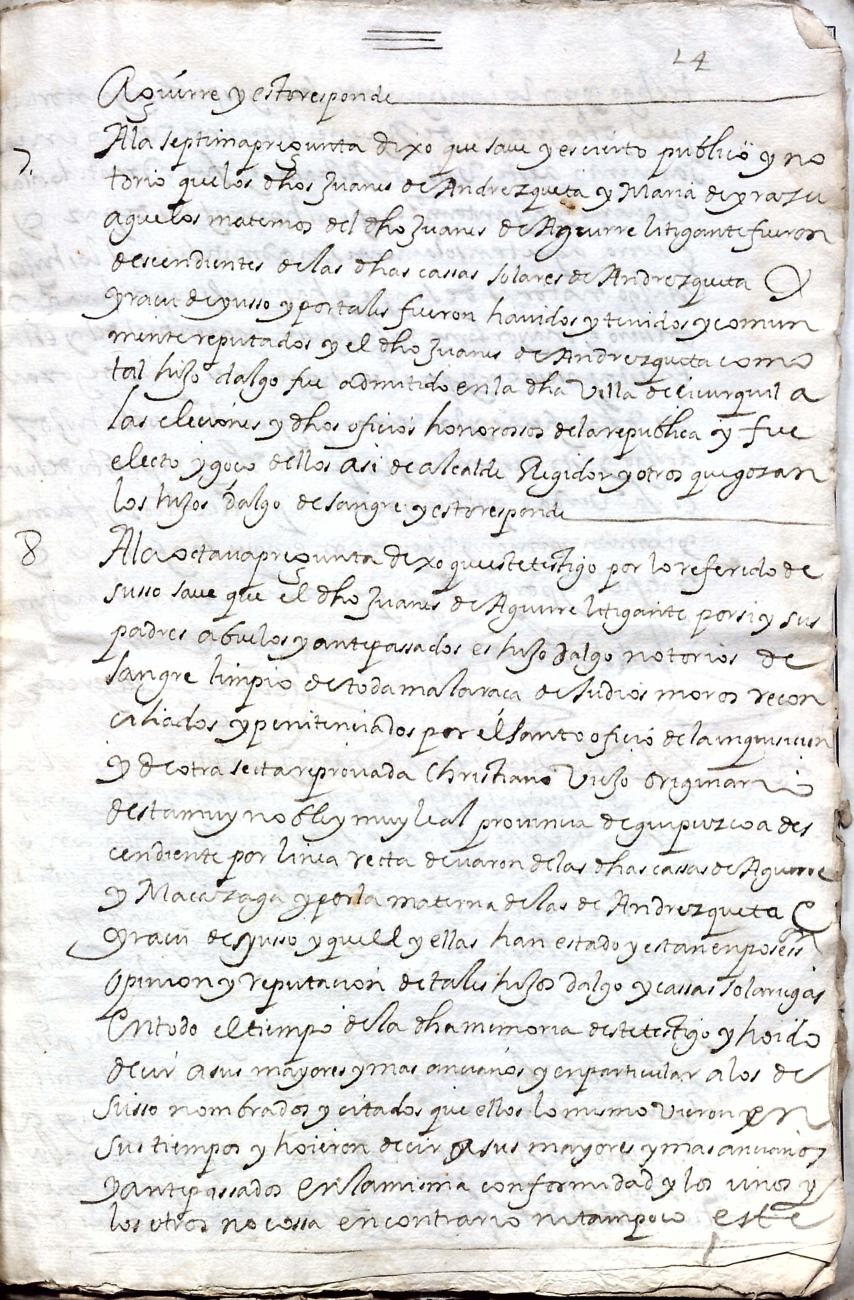 24
Aguirre y esto responde
7. A la septima pregunta dixo que saue y es cierto publico y no
torio que los dhos Juanes de Andrezqueta y Maria de yrazu
aguelos maternos del dho Juanes de Aguirre litigante fueron
descendientes de las dhas cassas solares de Andrezqueta
yraçu de yusso y portales fueron hauidos y tenidos y comun
mente reputados y el dho Juanes de Andrezqueta como
tal hijo dalgo fue admitido en la dha Villa de Cicurquil a
las eleciones y dhos oficios honorossos de la republica y fue
electo y goço dellos asi de alcalde Regidor y otros que gozan
los hijos dalgo de sangre y esto responde
8 A la octaua pregunta dixo que este testigo por lo referido de
susso saue que el dho Juanes de Aguirre litigante por si y sus
padres abuelos y antepassados es hijo dalgo notorios de
sangre limpio de toda mala raça de Judios moros recon
ciliados y penitenciados por el santo oficio de la inquisicion
y de otra secta reprouada Christiano Viejo originario
desta muy noble y muy leal prouincia de guipuzcoa des
cendiente por linea recta de uaron de las dhas cassas de Aguirre
y Macazaga y por la materna de las de Andrezqueta e
yraçu de yusso y quell y ellas han estado y estan en posess
opinion y reputacion de tales hijos dalgo y cassas solariegas
En todo el tiempo de la dha memoria deste testigo y hoido
decir a sus mayores y mas ancianos y en particular a los de
susso nombrados y citados que ellos lo mismo vieron en
sus tiempos y hoieron decir a sus mayores y mas ancianos
y antepassados en la misma conformidad y los vnos y
los otros no cossa en contrario ni tampoco este